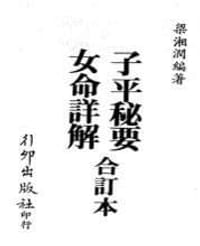 梁湘潤編著
子平秘要
女命詳解
合訂本
行卯出版社印行